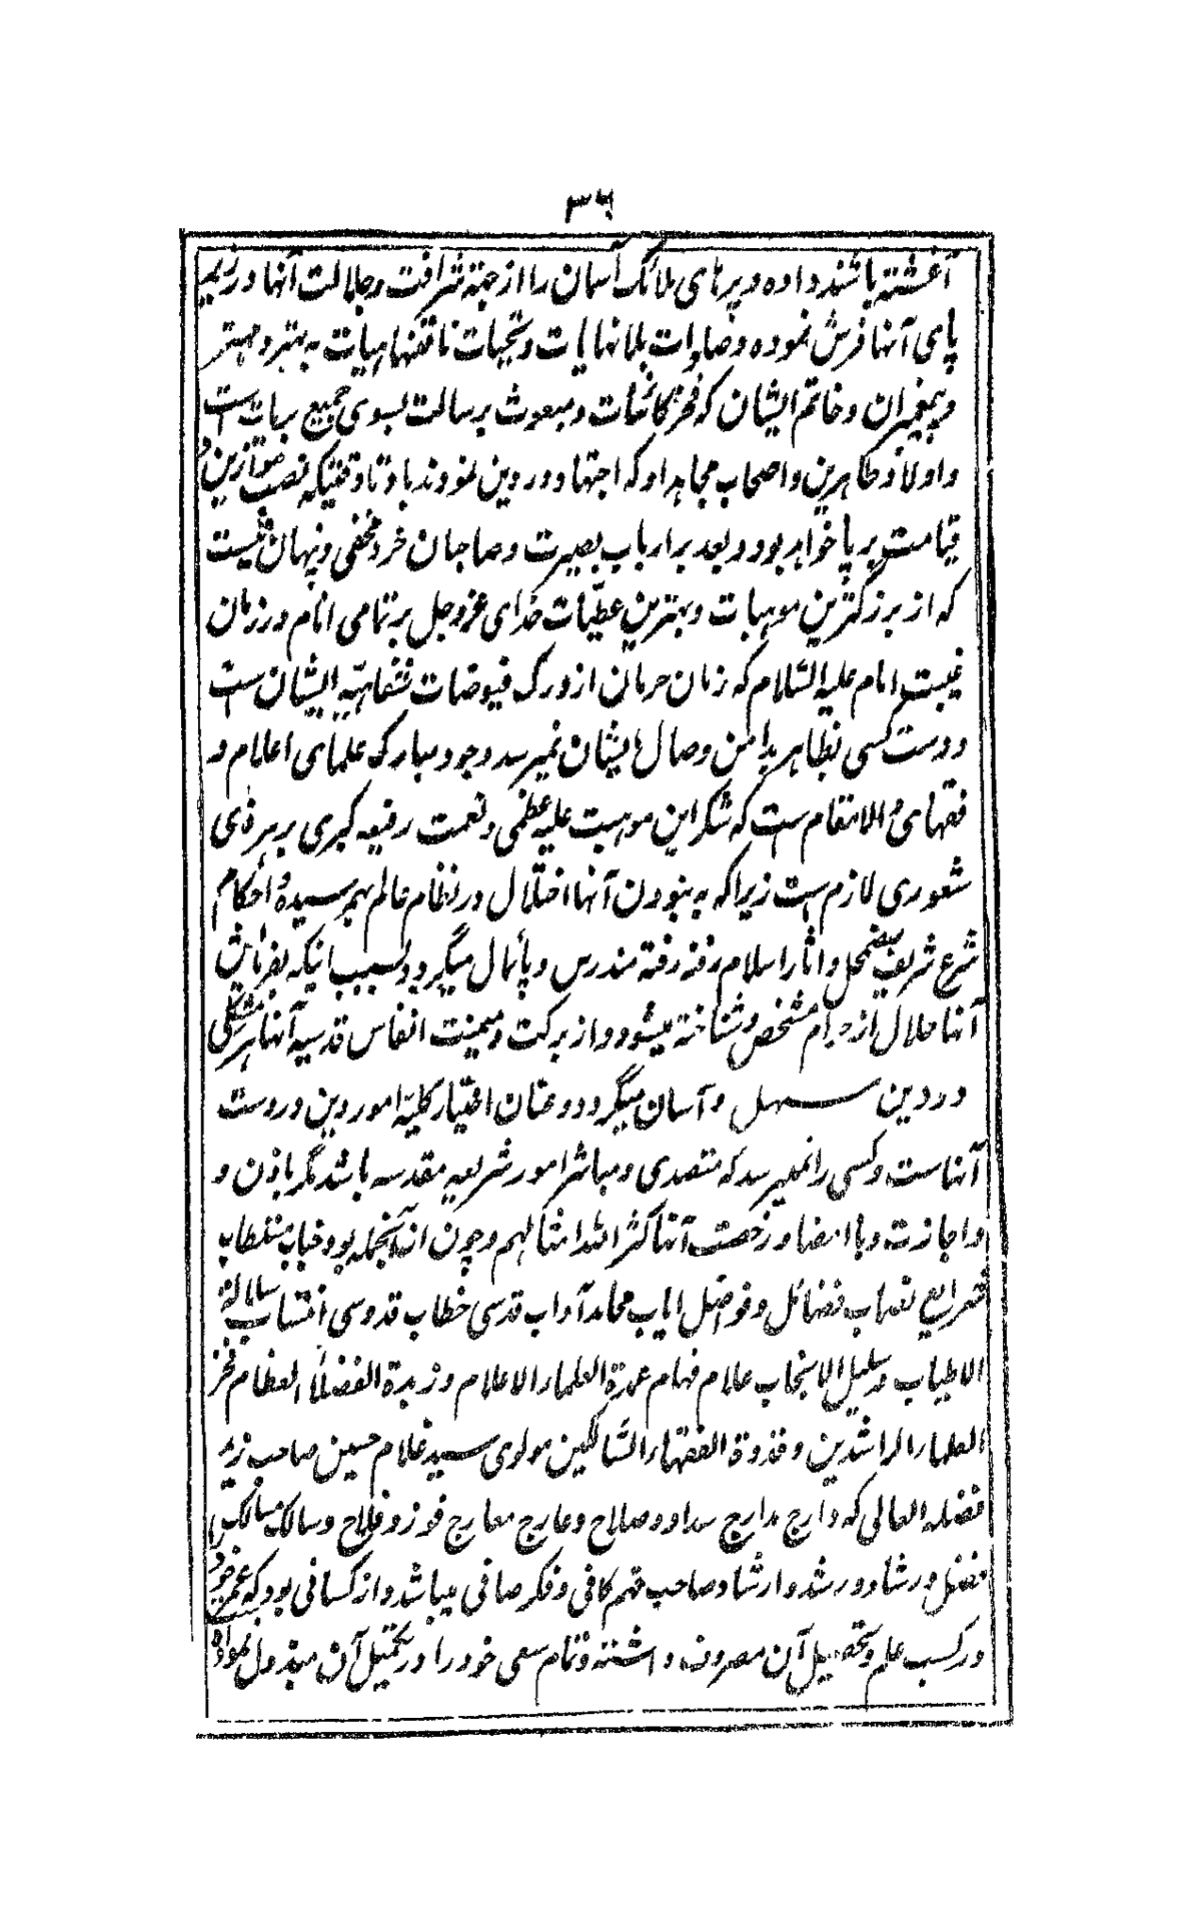 ۳۶
آغشته باشند داده و پرهای ملائک آسمان را از جهة شرافت و جلالت آنها در زیر
پای آنها فرش نموده و صلوات بلا نهایات و تحیات نامتناهیات به بهتر و مهتر
پیغمبران و خاتم ایشان که فخر کائنات و مبعوث برسالت بسوی جمیع بریات است
و اولاد طاهرین و اصحاب مجاهد او که اجتهاد در دین نمودند باد تا وقتیکه نصب موازین در
قیامت برپا خواهد بود و بعد بر ارباب بصیرت و صاحبان خرد مخفی و پنهان نیست
که از بزرگترین موهبات و بهترین عطیّات خدای عزوجل بر تمامی انام در زمان
غیبت امام علیه السّلام که زمان حرمان از درک فیوضات شفاهیّه ایشان ست
و دست کسی بظاهر بدامن وصال ایشان نمیرسد وجود مبارک علمای اعلام و
فقهای والامقام ست که شکر این موهبت علیه عظمی و نعمت رفیعه کبری بر هر ذی
شعوری لازم ست زیرا که به نبودن آنها اختلال در نظام عالم بهم رسیده و احکام
شرع شریف مضمحل و اثار اسلام رفته رفته مندرس و پائمال میگردد بسبب اینکه بفرمایش
آنها حلال از حرام مشخص و شناخته میشود و از برکت و میمنت انفاس قدسیه آنها هر مشکلی
در دین سهل و آسان میگردد و عنان اختیار کلیّه امور دین در دست
آنهاست و کسی را نمیرسد که متصدی و مباشر امور شریعه مقدسه باشد مگر باذن و
و اجازت و با امضا و رخصت آنها کثر الله امثالهم و چون ازآنجمله بود جناب مستطاب
شرایع نصاب فضائل و فواضل ایاب محامد آداب قدسی خطاب قدوسی انتساب سلالة
الاطیاب و سلیل الانجاب علام فهام عمدة العلماء الاعلام و زبدة الفضلاء العظام فخر
العلماء الراشدین و قدوة الفقهاء السّالکین مولوی سید غلام حسین صاحب زید
فضله العالی که دارج مدارج سداد و صلاح و عارج معارج فوز و فلاح و سالک مسالک
فضل و رشاد و رشد و ارشاد صاحب فهم کافی و فکر صافی میباشد و از کسانی بود که عمر خود
در کسب علم و تحصیل آن مصروف داشته و تمام سعی خود را در تکمیل آن مبذول نموده